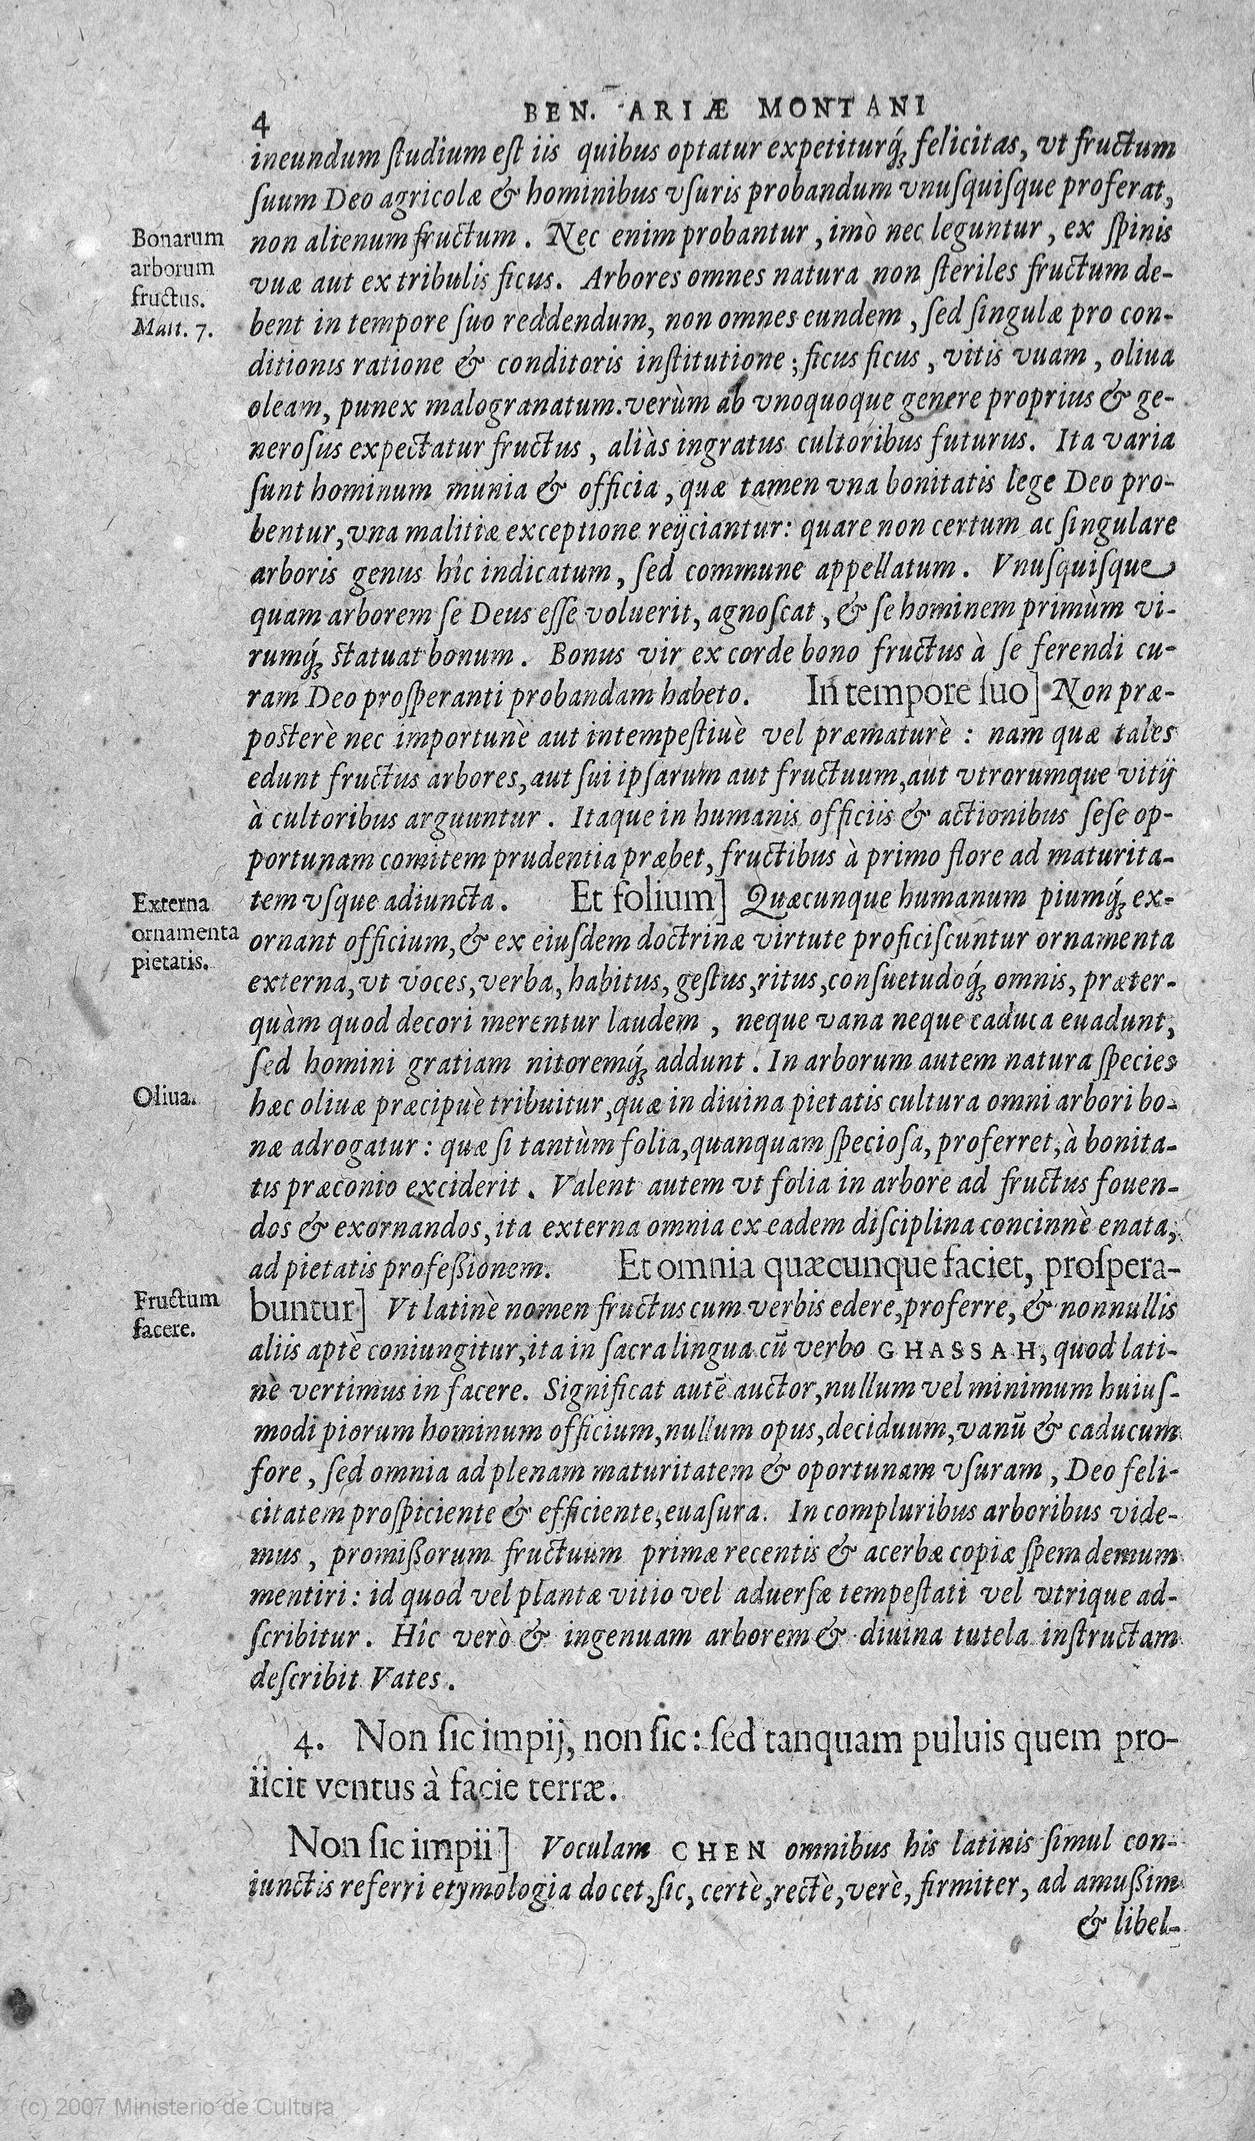 4
BEN. ARIÆ MONTANI
ineundum ſtudium eſt iis quibus optatur expetiturq́; felicitas, vt fructum
ſuum Deo agricolæ & hominibus vſuris probandum vnuſquiſque proferat,
non alienum fructum. Nec enim probantur, imò nec leguntur, ex ſpinis
vuæ aut ex tribulis ficus. Arbores omnes natura non ſteriles fructum de-
bent in tempore ſuo reddendum, non omnes eundem, ſed ſingulæ pro con-
ditionis ratione & conditoris inſtitutione; ficus ficus, vitis vuam, oliua
oleam, punex malogranatum. verùm ab vnoquoque genere proprius & ge-
neroſus expectatur fructus, aliàs ingratus cultoribus futurus. Ita varia
ſunt hominum munia & officia, quæ tamen vna bonitatis lege Deo pro-
bentur, vna malitiæ exceptione reijciantur: quare non certum ac ſingulare
arboris genus hîc indicatum, ſed commune appellatum. Vnuſquiſque
quam arborem ſe Deus eſſe voluerit, agnoſcat, & ſe hominem primùm vi-
rumq́; ſtatuat bonum. Bonus vir ex corde bono fructus à ſe ferendi cu-
ram Deo proſperanti probandam habeto. In tempore ſuo] Non præ-
poſterè nec importunè aut intempeſtiuè vel præmaturè: nam quæ tales
edunt fructus arbores, aut ſui ipſarum aut fructuum, aut vtrorumque vitij
à cultoribus arguuntur. Itaque in humanis officiis & actionibus ſeſe op-
portunam comitem prudentia præbet, fructibus à primo flore ad maturita-
tem vſque adiuncta. Et folium] Quæcunque humanum piumq́; ex-
ornant officium, & ex eiuſdem doctrinæ virtute proficiſcuntur ornamenta
externa, vt voces, verba, habitus, geſtus, ritus, conſuetudoq́; omnis, præter-
quàm quod decori merentur laudem, neque vana neque caduca euadunt,
ſed homini gratiam nitoremq́; addunt. In arborum autem natura ſpecies
hæc oliuæ præcipuè tribuitur, quæ in diuina pietatis cultura omni arbori bo-
næ adrogatur: quæ ſi tantùm folia, quanquam ſpecioſa, proferret, à bonita-
tis præconio exciderit. Valent autem vt folia in arbore ad fructus fouen-
dos & exornandos, ita externa omnia ex eadem diſciplina concinnè enata,
ad pietatis profeßionem. Et omnia quæcunque faciet, proſpera-
buntur] Vt latinè nomen fructus cum verbis edere, proferre, & nonnullis
aliis aptè coniungitur, ita in ſacra lingua cū verbo GHASSAH, quod lati-
nè vertimus in facere. Significat autē auctor, nullum vel minimum huiuſ-
modi piorum hominum officium, nullum opus, deciduum, vanū & caducum
fore, ſed omnia ad plenam maturitatem & oportunam vſuram, Deo feli-
citatem proſpiciente & efficiente, euaſura. In compluribus arboribus vide-
mus, promißorum fructuum primæ recentis & acerbæ copiæ ſpem demum
mentiri: id quod vel plantæ vitio vel aduerſæ tempeſtati vel vtrique ad-
ſcribitur. Hîc verò & ingenuam arborem & diuina tutela inſtructam
deſcribit Vates.
4. Non ſic impij, non ſic: ſed tanquam puluis quem pro-
iicit ventus à facie terræ.
Non ſic impii] Voculam CHEN omnibus his latinis ſimul con-
iunctis referri etymologia docet, ſic, certè, rectè, verè, firmiter, ad amußim
& libel-
Bonarum
arborum
fructus.
Matt. 7.
Externa
ornamenta
pietatis.
Oliua.
Fructum
facere.
(c) 2007 Ministerio de Cultura